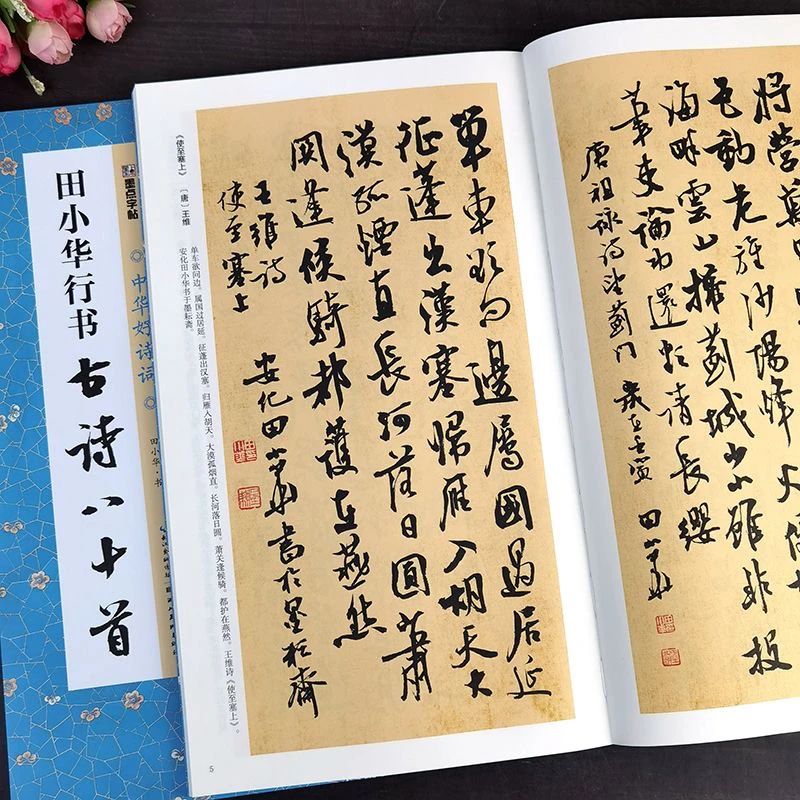 墨点字帖
田小华行书
古诗八十首
中华好诗词
田小华·书
《使至塞上》 〔唐〕王维
单车欲问边。属国过居延。征蓬出汉塞。归雁入胡天。大漠孤烟直。长河落日圆。萧关逢候骑。都护在燕然。王维诗《使至塞上》。
安化田小华书于墨耘斋。
單車欲問邊屬國過居延
征蓬出漢塞歸雁入胡天大
漠孤煙直長河落日圓蕭
關逢候騎都護在燕然
王維詩
使至塞上
安化田小華書於墨耘齋
5
將營
色動危旌沙場烽火
海畔雲山擁薊城少小雖非投
筆吏論功還欲請長纓
唐祖詠詩望薊門 歲在壬寅 田小華